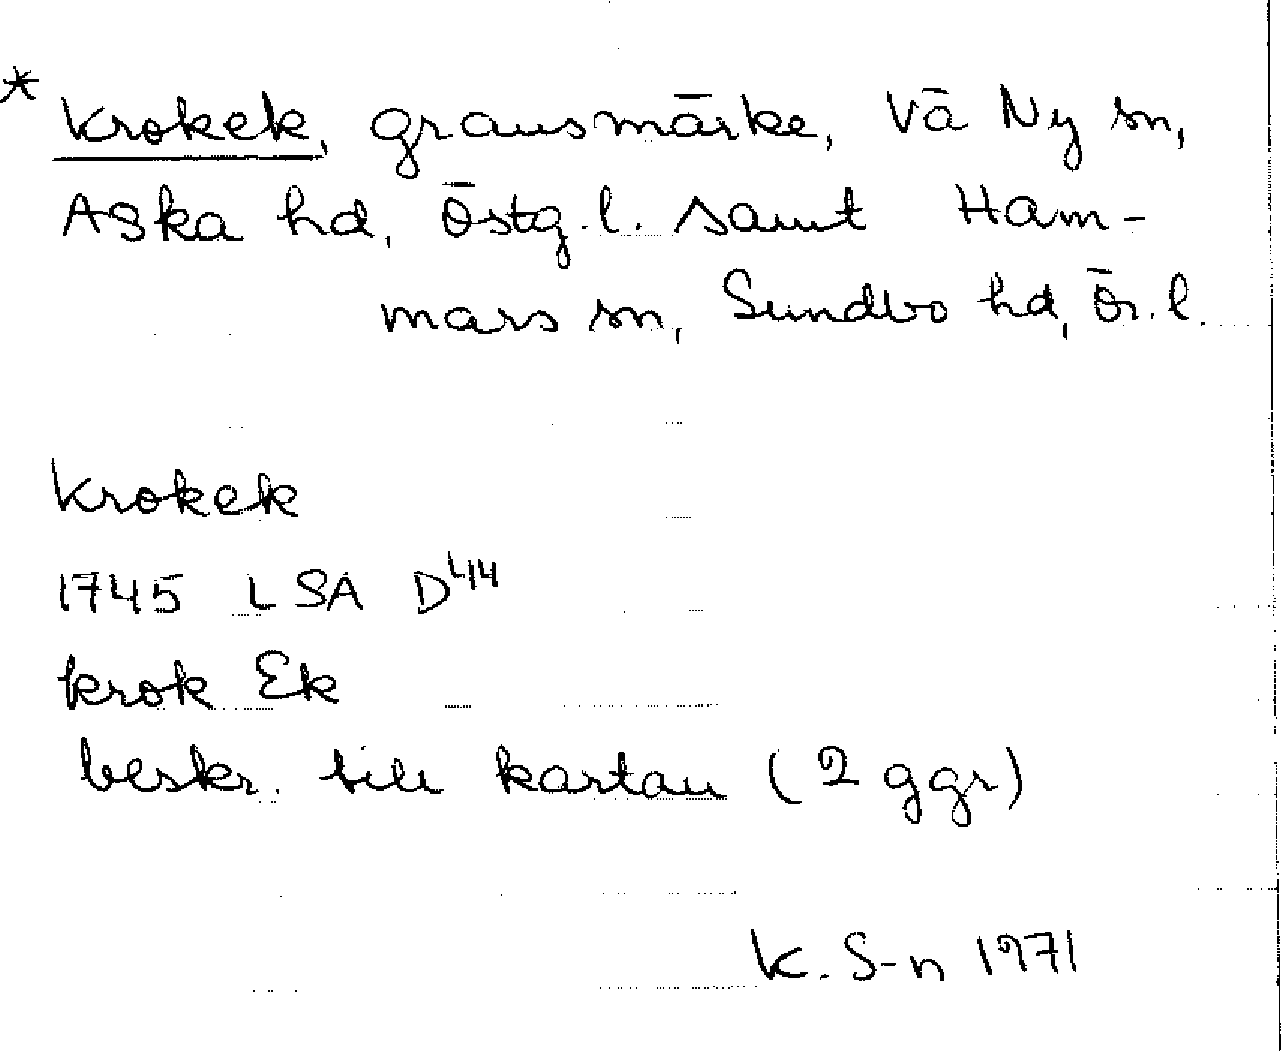 * Krokek, gränsmärke, Vä Ny sn,
Aska hd, Östg.l. samt Ham-
mars sn, Sundbo hd, Ör.l.
Krokek
1745 LSA D⁴¹⁴
krok Ek
beskr. till kartan (2 ggr)
K. S-n 1971